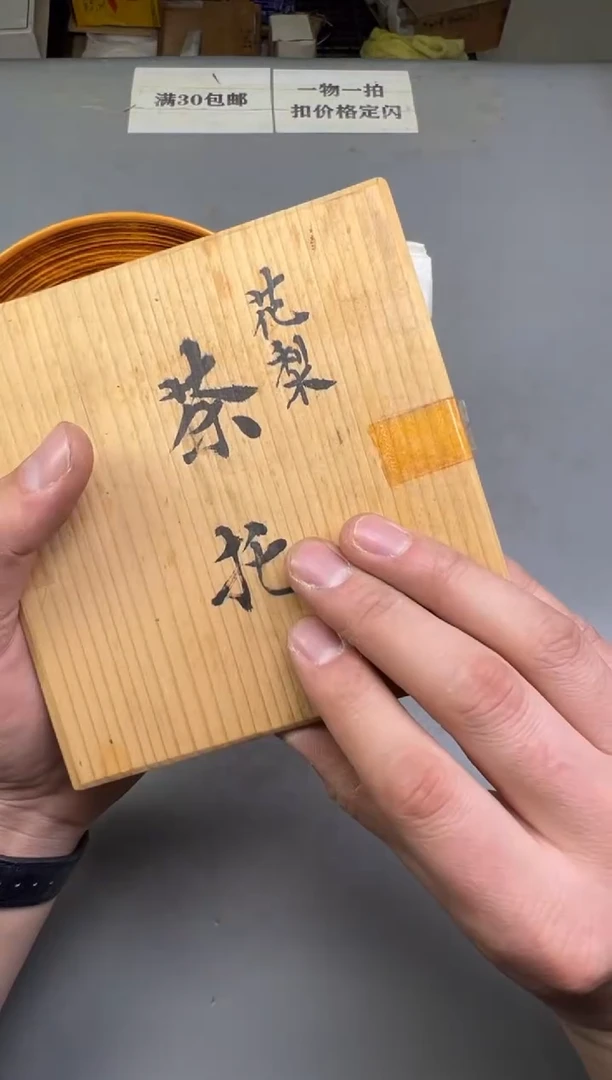 满30包邮
一物一拍
扣价格定闪
花梨
茶托